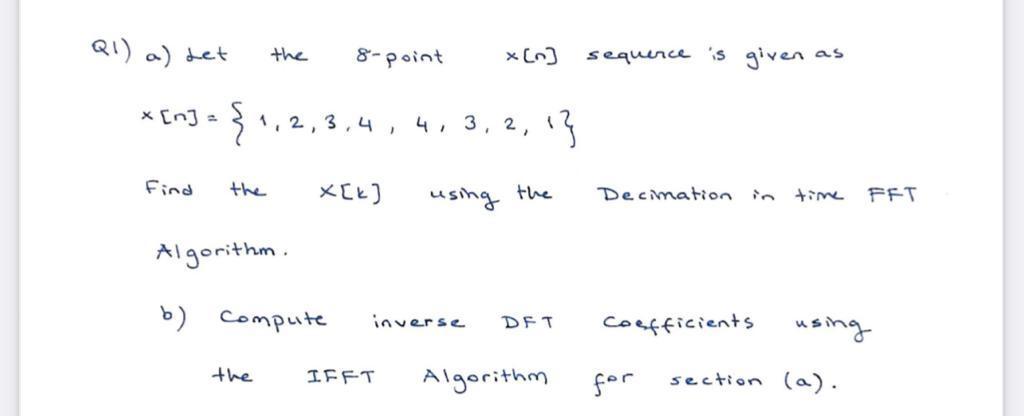 Q1) a) Let the 8-point x[n] sequence is given as
x[n] = { 1, 2, 3, 4, 4, 3, 2, 1}
Find the X[k] using the Decimation in time FFT
Algorithm.
b) Compute inverse DFT Coefficients using
the IFFT Algorithm for section (a).